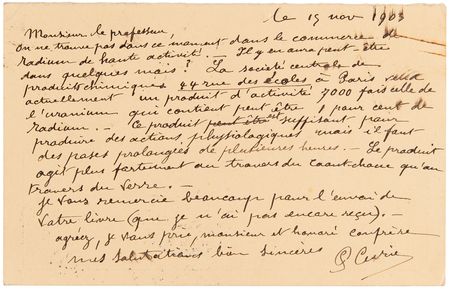 le 15 nov 1903
Monsieur le professeur,
On ne trouve pas dans ce moment dans le commerce de
radium de haute activité. — Il y en aura peut-être
dans quelques mois? La société centrale de
produits chimiques 44 rue des écoles à Paris vend
actuellement un produit d'activité 7000 fois celle de
l'uranium qui contient peut être 1 pour cent de
radium. — Ce produit peut être est suffisant pour
produire des actions physiologiques mais il faut
des poses prolongées de plusieures heures. — Le produit
agit plus fortement au travers du caoutchouc qu'au
travers du verre. —
je vous remercie beaucoup pour l'envoi de
votre livre (que je n'ai pas encore reçu). —
agréez, je vous prie, monsieur et honoré confrère
mes salutations bien sincères P Curie